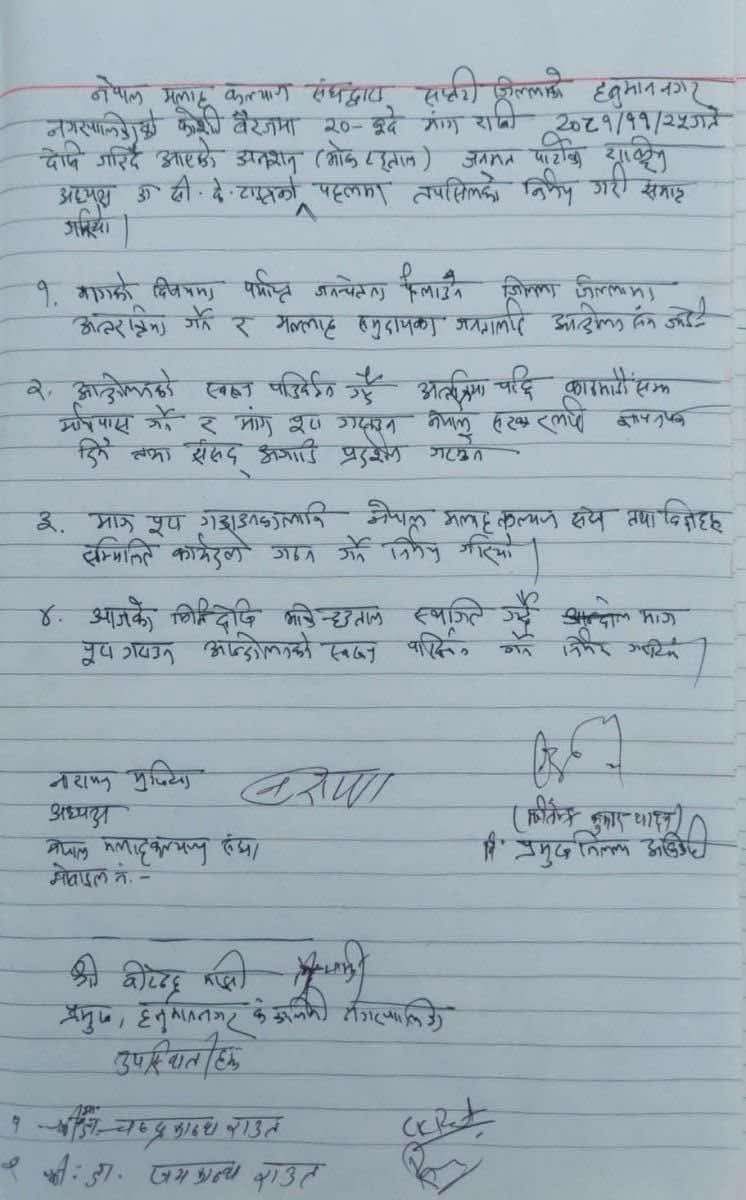 नेपाल मलाह कल्याण संघद्वारा सप्तरी जिल्लाको हनुमाननगर
नगरपालिकाको कोशी वैरेजमा २०-बुदे मांग राखी 2०८१/११/२५गते
देखि गरिदै आएको अनशन (भोक हडताल) जनमत पार्टीका
अध्यक्ष डा सी. के. राउतको पहलमा तपसिलको निर्णय गरी समाप्त
गरियो।
१. मागको विषयमा पर्याप्त जनचेतना फैलाउन जिल्ला जिल्लामा
अन्तरक्रिया गर्ने र मल्लाह समुदायका जनतालाई आन्दोलन संग जोड्ने
२. आन्दोलनको स्वरुप परिवर्तन गर्दै काठमाडौं सम्म
मार्चपास गर्ने र मांग पुरा गराउन नेपाल सरकारलाई ज्ञापनपत्र
दिने तथा संसद् अगाडि प्रदर्शन
३. माग पुरा गराउनकालागि नेपाल मलाह कल्याण संघ तथा
सम्मिलित गठन गर्ने निर्णय गरियो।
४. आजको मितिदेखि भोक-हडताल स्थगित गर्दै माग
पुरा गराउन आन्दोलनको स्वरुप परिवर्तन गर्ने निर्णय गरियो।
नारायण मुखिया
अध्यक्ष
नेपाल मलाह कल्याण संघ।
मोवाइल नं. -
(जितेन्द्र कुमार यादव)
नि. प्रमुख जिल्ला अधिकारी
श्री वीरेन्द्र माझी
प्रमुख, हनुमाननगर कंकालिनी नगरपालिका
उपस्थितीहरु
१ चन्द्र कान्त राउत
२ श्री: डा. जय कान्त राउत